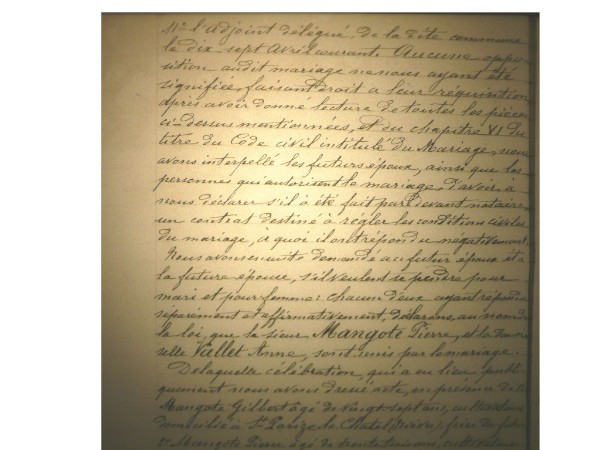 Mr l'Adjoint délégué, de la dite commune
le dix-sept Avril courant. Aucune oppo-
sition audit mariage ne nous ayant été
signifiée, faisant droit a leur réquisition
après avoir donné lecture de toutes les pièces
ci-dessus mentionnées, et du chapitre VI du
titre du Code civil intitulé du Mariage, nous
avons interpellé les futurs époux, ainsi que les
personnes qui autorisent le mariage, d'avoir a
nous déclarer s'il a été fait par devant notaire
un contrat destiné à régler les conditions civiles
du mariage, à quoi il ont répondu négativement
Nous avons ensuite demandé au futur époux et à
la future épouse, s'il veulent se prendre pour
mari et pour femme: chacun d'eux ayant répondu
séparément et affirmativement, déclarons, au nom de
la loi, que le sieur Mangote Pierre, et la Demoi-
selle Viallet Anne, sont unis par le mariage.
De laquelle célébration, qui a eu lieu publi-
quement nous avons dressé acte, en présence de
Mangote Gilbert âgé de vingt-sept ans, cultivateur
domicilié à St Parize le Chatel (Nièvre), frère du futur
2° Mangote Pierre âgé de trente ans, cultivateur